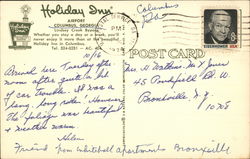 Holiday Inn
AIRPORT
COLUMBUS, GEORGIA
Lindsey Creek Bypass
Whether you stay a day or a week, you'll
never enjoy it more than at the beautiful
Holiday Inn in Columbus.
Tel: 324-0231 - AC: 404
Columbus
Ga.
PM
EISENHOWER USA
POST CARD
10/12
Arrived here Tuesday after
noon after quite a bit
of car trouble. It was a
long long ride. However
the place was beautiful
& rested warm.
Helen
Mrs. Jones
45 Pondfield Rd. W.
Bronxville, N.Y.
10708
Friend from Whitehall apartments Bronxville